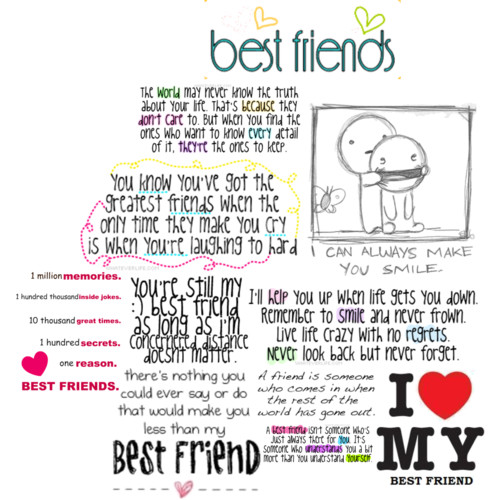 best friends
The World may never know the truth
about your life. That's because they
don't care to. But when you find the
ones who want to know every detail
of it, they're the ones to keep.
You know you've got the
greatest friends when the
only time they make you cry
is when you're laughing to hard
I CAN ALWAYS MAKE
YOU SMILE.
1 million memories.
1 hundred thousand inside jokes.
10 thousand great times.
1 hundred secrets.
one reason.
BEST FRIENDS.
you're still my
:) best friend
as long as i'm
concerneed, distance
doesnt matter.
I'll help you up when life gets you down.
Remember to smile and never frown.
Live life crazy with no regrets.
Never look back but never forget.
there's nothing you
could ever say or do
that would make you
less than my
Best Friend
A friend is someone
who comes in when
the rest of the
world has gone out.
A best friend isn't someone who's
just always there for you. It's
someone who understands you a bit
more than you understand yourself.
I
MY
BEST FRIEND